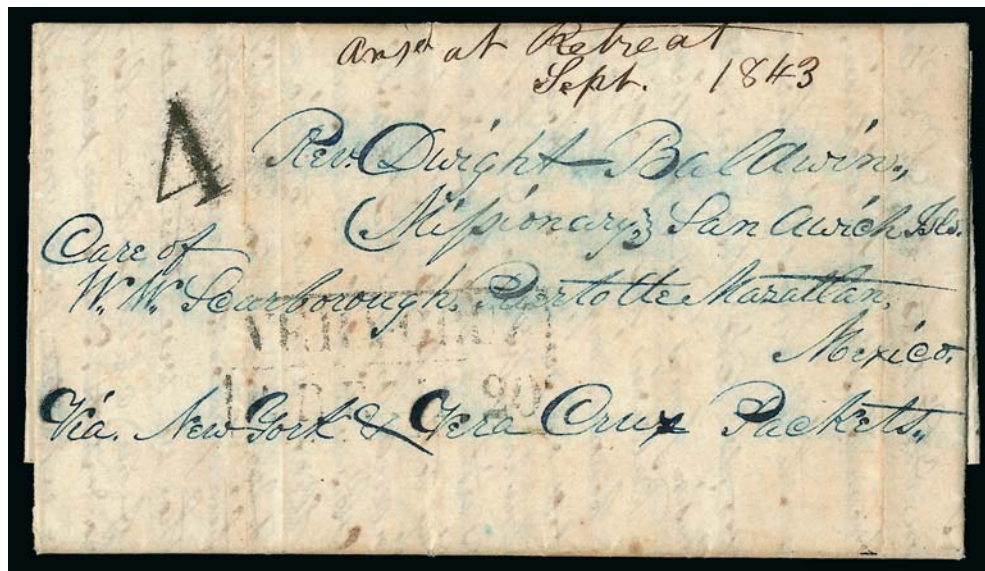 Ansd at Retreat
Sept. 1843
4
Rev. Dwight Baldwin,
Missionary, Sandwich Isls.
Care of
W. W. Scarborough, Mazatlan,
Mexico.
VERACRUZ
ABRIL 20
Via. New York & Vera Cruz Packets.